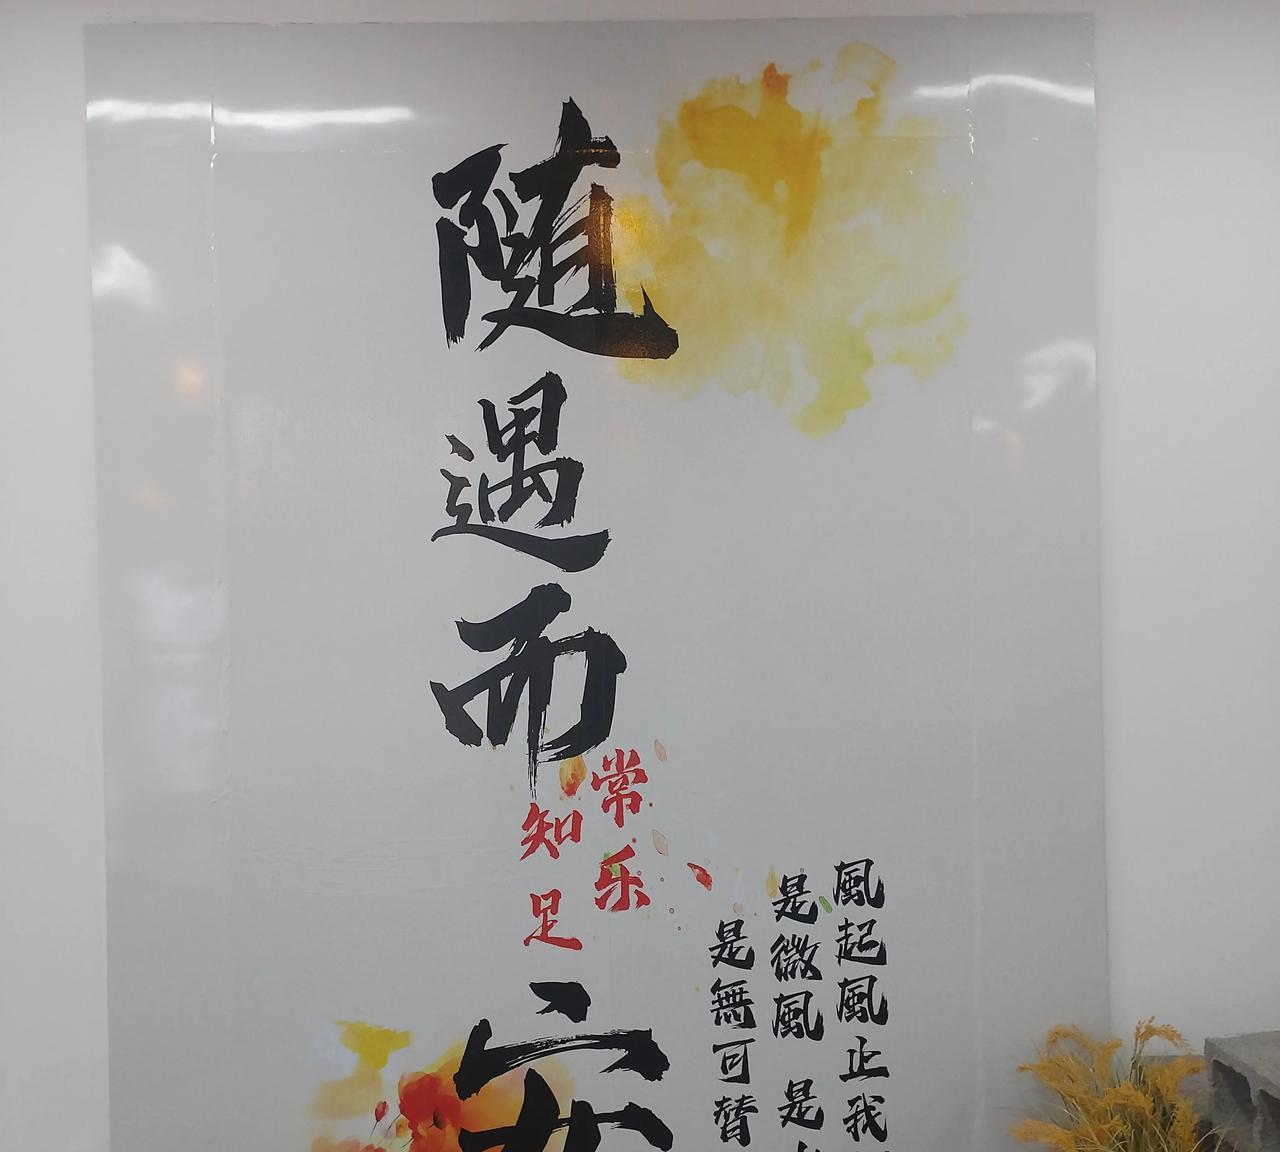 随遇而安
知足
常乐
風起風止我
是微風 是
是無可替